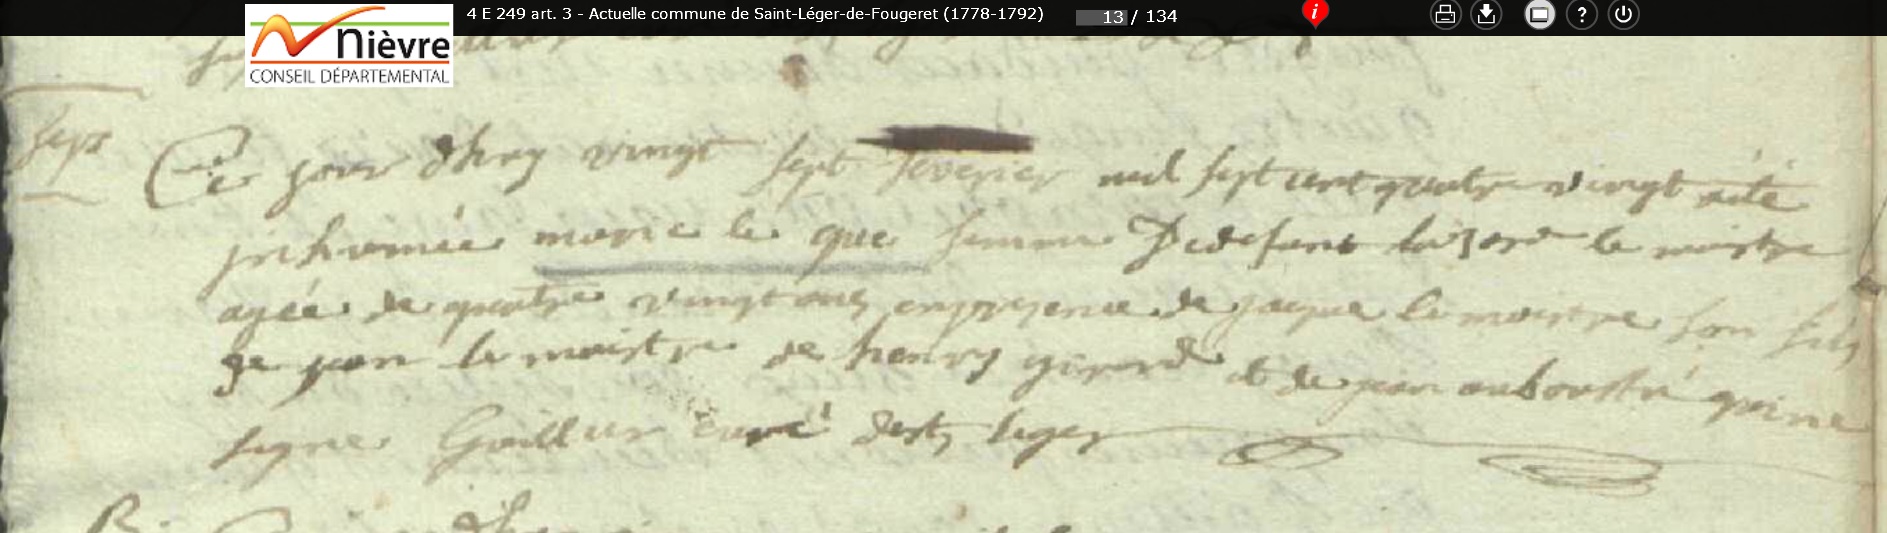 4 E 249 art. 3 - Actuelle commune de Saint-Léger-de-Fougeret (1778-1792)
13 / 134
Nièvre
CONSEIL DÉPARTEMENTAL
sept
Ce jour dhuy vingt sept fevrier mil sept cent quatre vingt a été
inhumée marie le que femme de defunt lazare le maistre
agée de quatre vingt ans en presence de jacque le maistre son fils
de jean le maistre de henry girard et de jean auboustré qui ne
signe Goillier curé de st leger